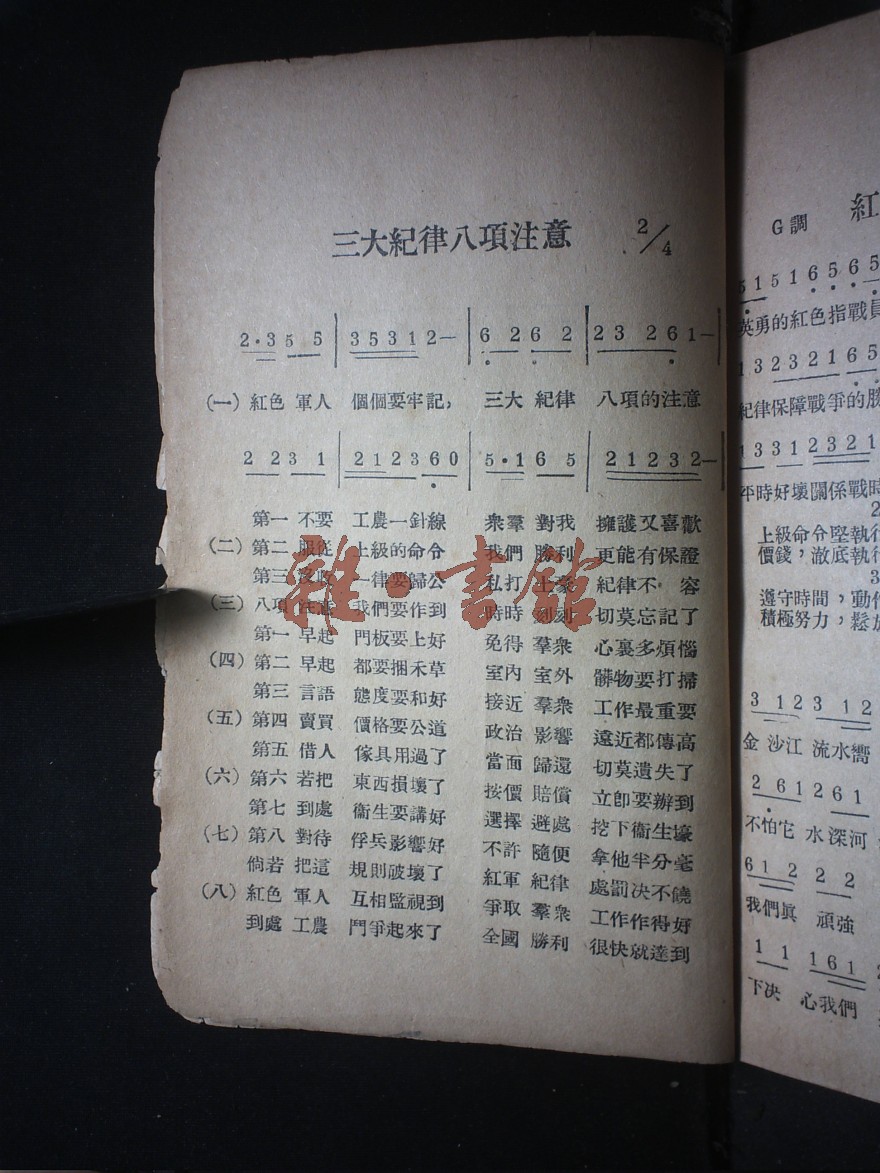 三大紀律八項注意 2/4
2·3 5 5 | 3531 2— | 6 2 6 2 | 23 26 1—|
(一) 紅色 軍人 個個要牢記, 三大 紀律 八項的注意
2 2 3 1 | 2123 6 0 | 5·1 6 5 | 21232—
第一 不要 工農一針線 衆羣 對我 擁護又喜歡
(二) 第二 服從 上級的命令 我們 勝利 更能有保證
第三 沒收 一律要歸公 私打 土豪 紀律不 容
(三) 八項 注意 我們要作到 時時 刻刻 切莫忘記了
第一 早起 門板要上好 免得 羣衆 心裏多煩惱
(四) 第二 早起 都要捆禾草 室內 室外 髒物要打掃
第三 言語 態度要和好 接近 羣衆 工作最重要
(五) 第四 賣買 價格要公道 政治 影響 遠近都傳高
第五 借人 傢具用過了 當面 歸還 切莫遺失了
(六) 第六 若把 東西損壞了 按價 賠償 立卽要辦到
第七 到處 衞生要講好 選擇 避處 挖下衞生壕
(七) 第八 對待 俘兵影響好 不許 隨便 拿他半分毫
倘若 把這 規則破壞了 紅軍 紀律 處罰决不饒
(八) 紅色 軍人 互相監視到 爭取 羣衆 工作作得好
到處 工農 鬥爭起來了 全國 勝利 很快就達到
雜·書館
G調 紅
5 1 5 1 6 5 6 5
英勇的紅色指戰員
1 3 2 3 2 1 6 5
紀律保障戰爭的勝
1 3 3 1 2 3 2 1
平時好壞關係戰時
2
上級命令堅執行
價錢，澈底執行
3
遵守時間，動作
積極努力，鬆放
3 1 2 3 1 2
金 沙江 流水嚮
2 6 1 2 6 1
不怕它 水深河
6 1 2 2 2
我們眞 頑強
1 1 1 6 1
下决 心我們